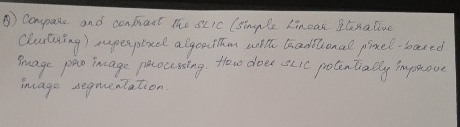 Q) Compare and contrast the SLIC (Simple Linear Iterative
Clustering) superpixel algorithm with traditional pixel-based
image pro image processing. How does SLIC potentially improve
image segmentation.